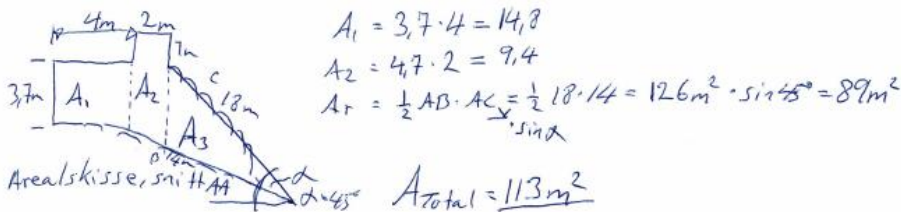 4m 2m
1m
3,7m A₁ A₂ C 18m
A₃
B 14m
Arealskisse, snitt AA
α
α=45°
A₁ = 3,7·4 = 14,8
A₂ = 4,7·2 = 9,4
A_T = ½ AB·AC = ½ 18·14 = 126m² · sin45° = 89m²
·sinα
A_Total = 113m²